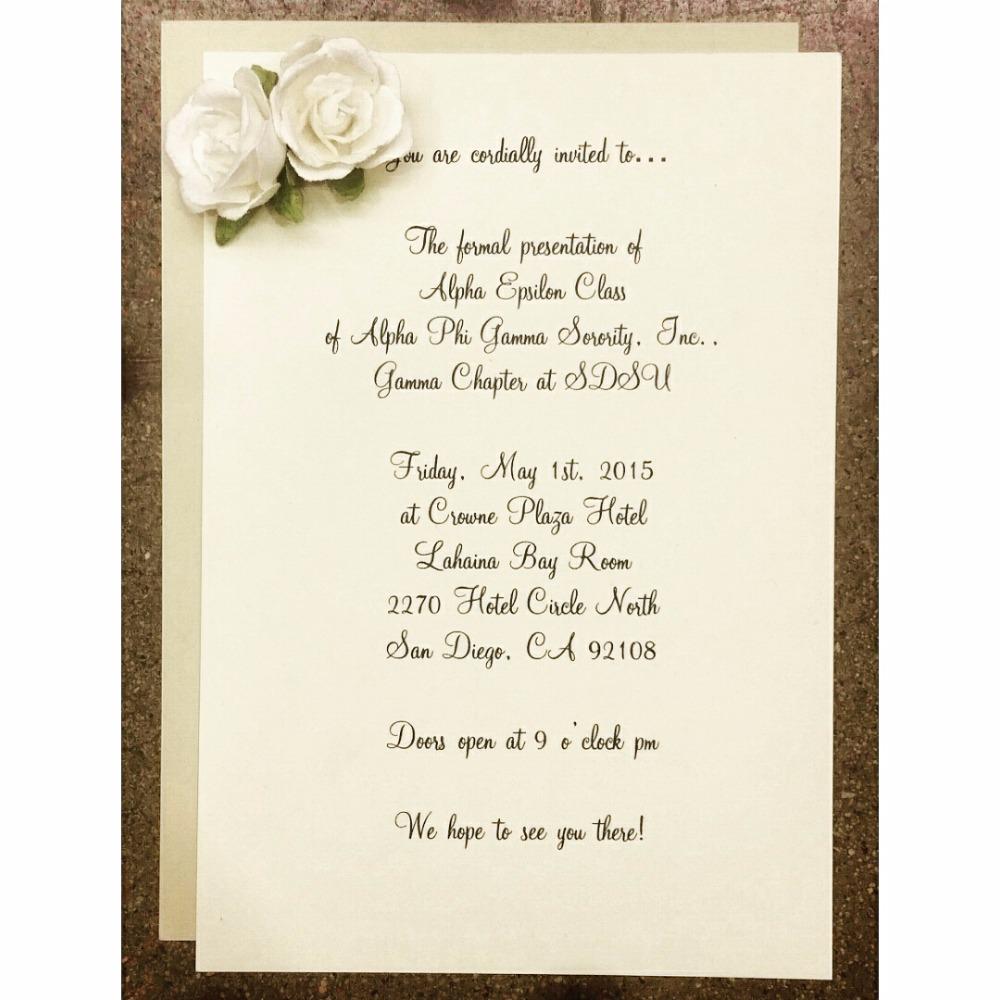 You are cordially invited to...
The formal presentation of
Alpha Epsilon Class
of Alpha Phi Gamma Sorority, Inc.,
Gamma Chapter at SDSU
Friday, May 1st, 2015
at Crowne Plaza Hotel
Lahaina Bay Room
2270 Hotel Circle North
San Diego, CA 92108
Doors open at 9 o'clock pm
We hope to see you there!